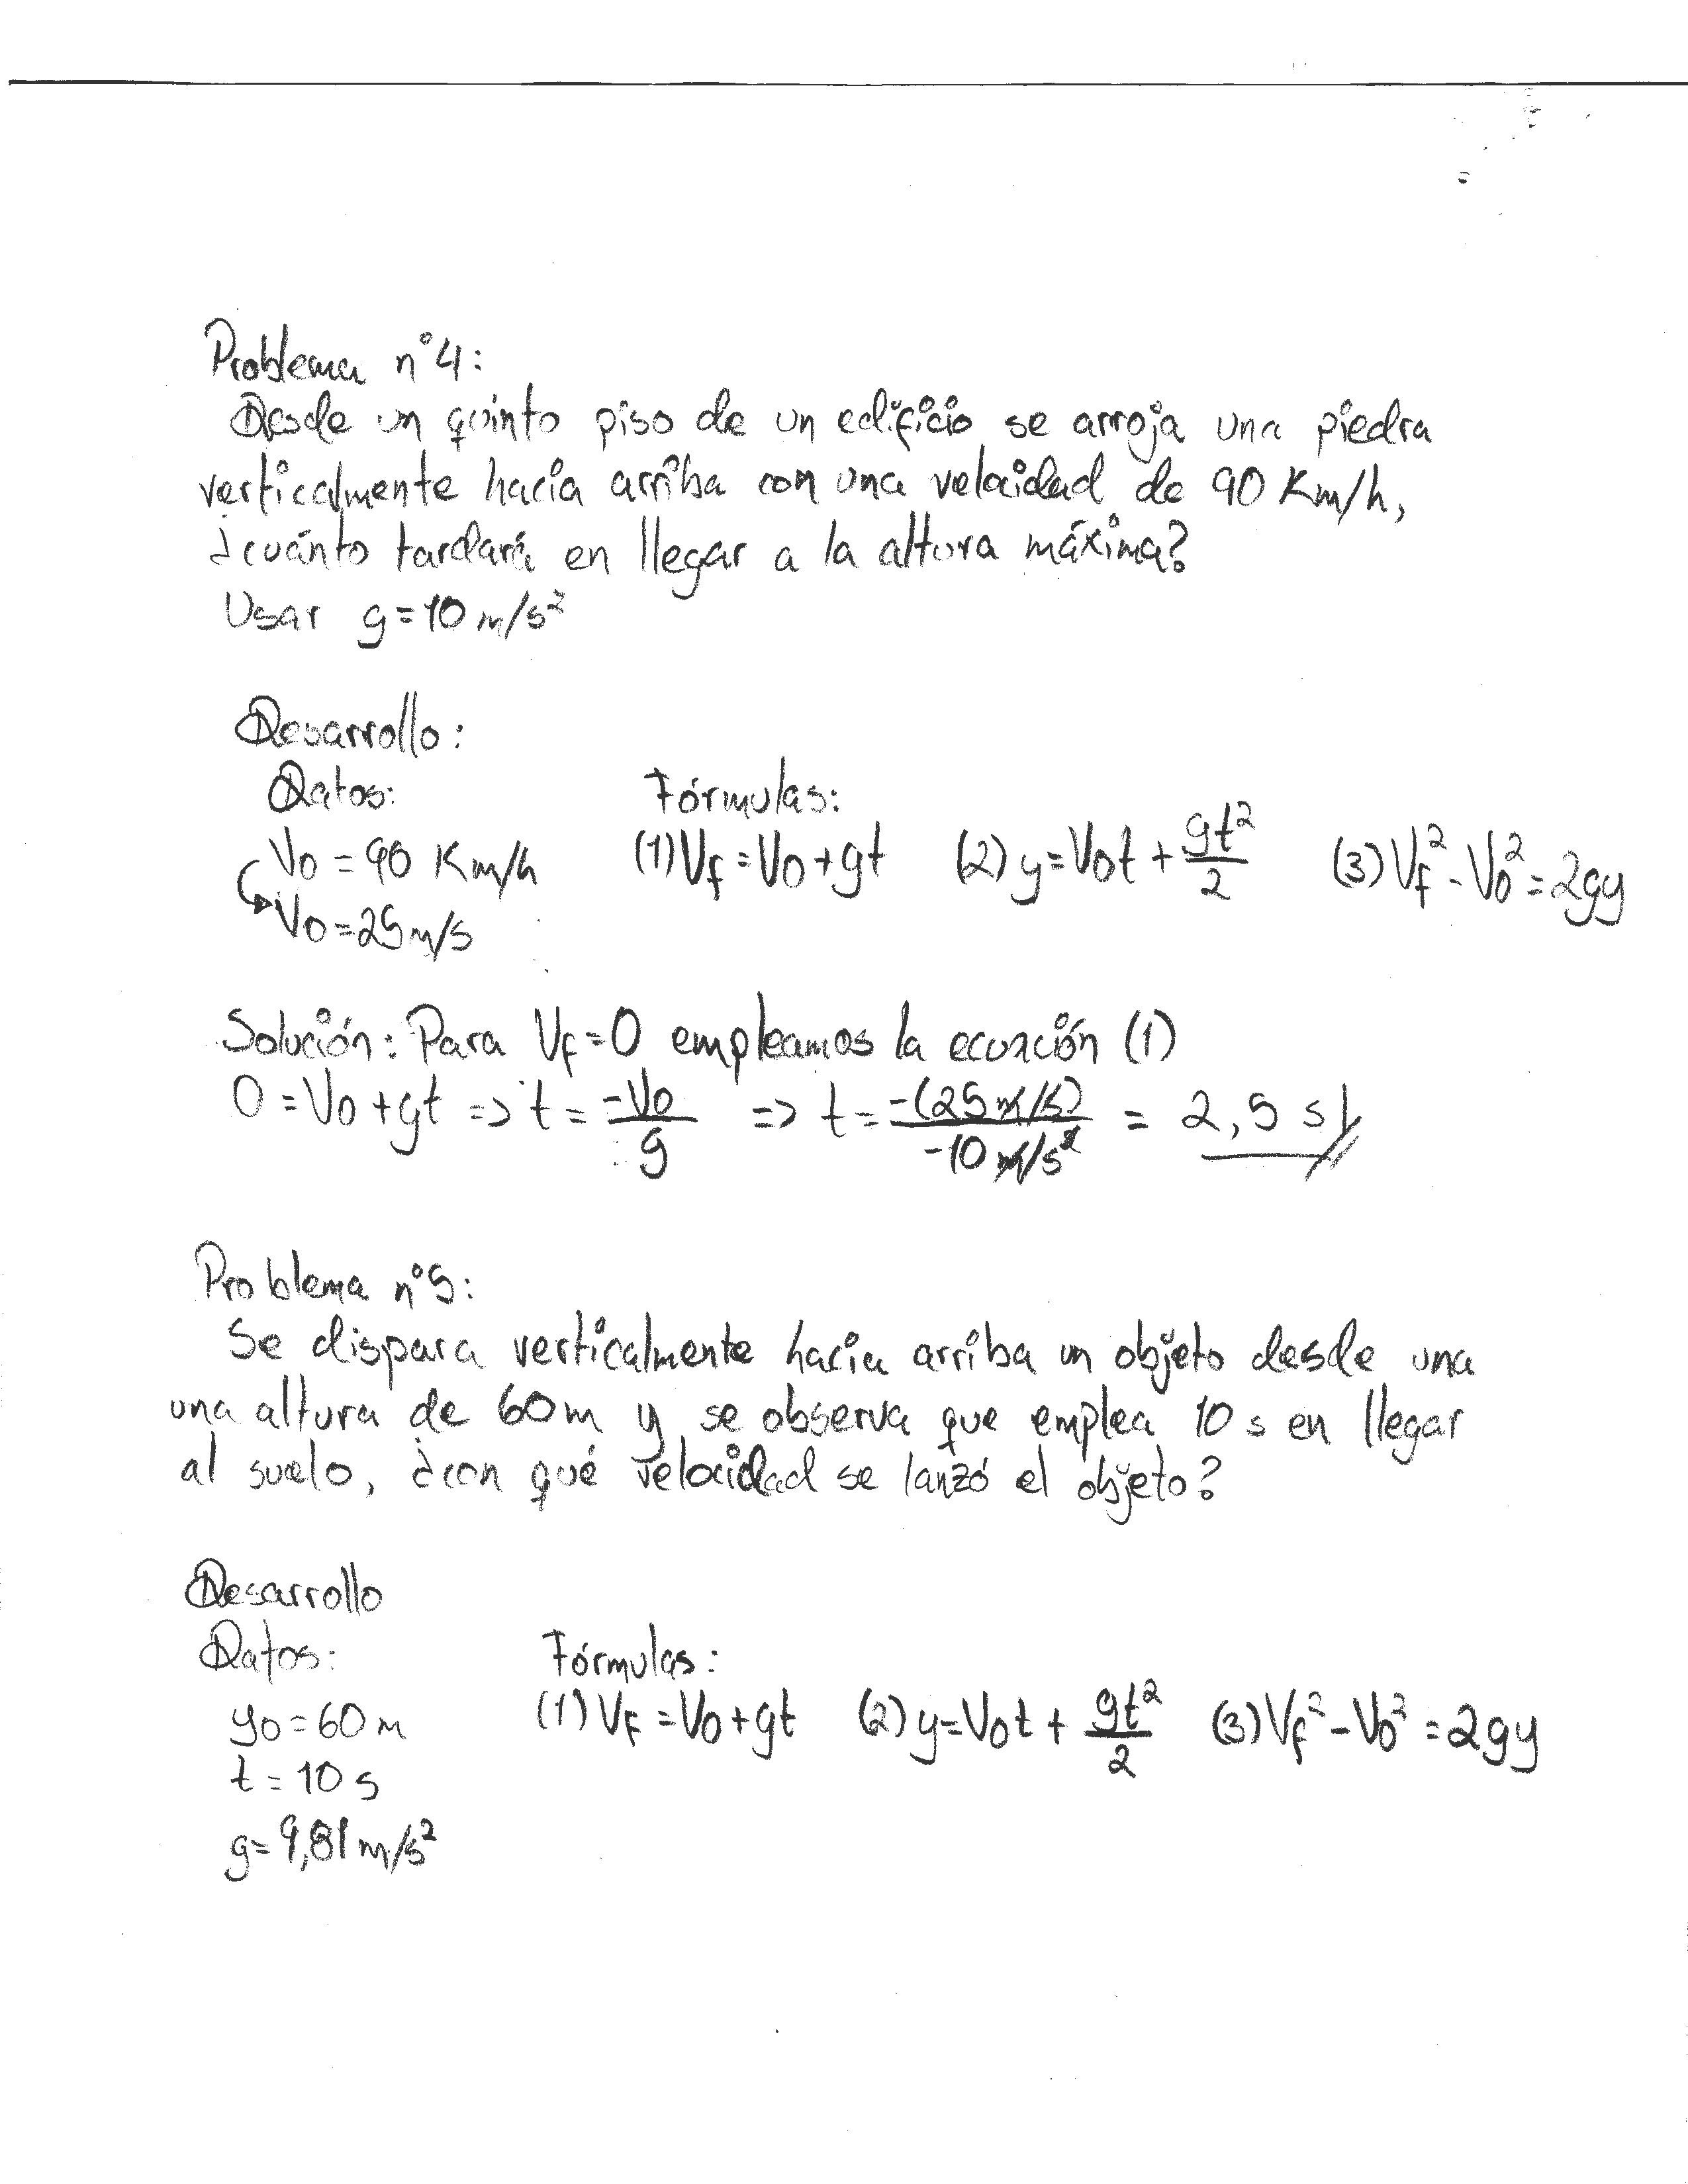 Problema n°4:
Desde un quinto piso de un edificio se arroja una piedra
verticalmente hacia arriba con una velocidad de 90 Km/h,
¿cuánto tardará en llegar a la altura máxima?
Usar g=10 m/s²
Desarrollo:
Datos: Fórmulas:
V0 = 90 Km/h (1) Vf = V0 + gt (2) y = V0t + gt²/2 (3) Vf² - V0² = 2gy
V0 = 25 m/s
Solución: Para Vf = 0 empleamos la ecuación (1)
0 = V0 + gt => t = -V0/g => t = -(25 m/s)/-10 m/s² = 2,5 s
Problema n°5:
Se dispara verticalmente hacia arriba un objeto desde una
una altura de 60 m y se observa que emplea 10 s en llegar
al suelo, ¿con qué velocidad se lanzó el objeto?
Desarrollo
Datos: Fórmulas:
y0 = 60 m (1) Vf = V0 + gt (2) y = V0t + gt²/2 (3) Vf² - V0² = 2gy
t = 10 s
g = 9,81 m/s²